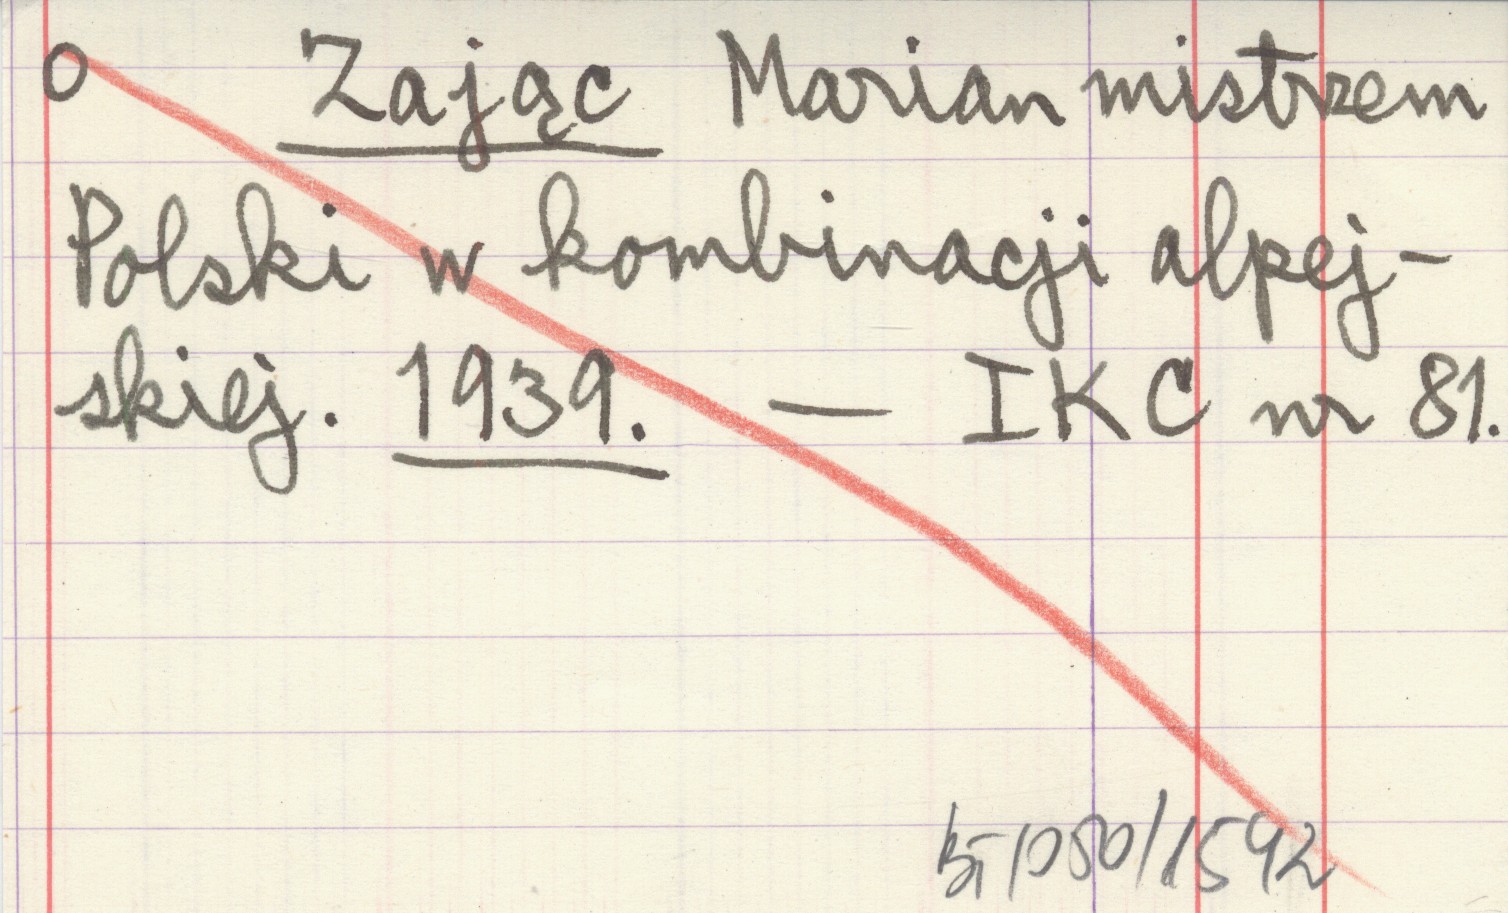 O Zając Marian mistrzem
Polski w kombinacji alpej-
skiej. 1939. — IKC nr 81.
1080/1592